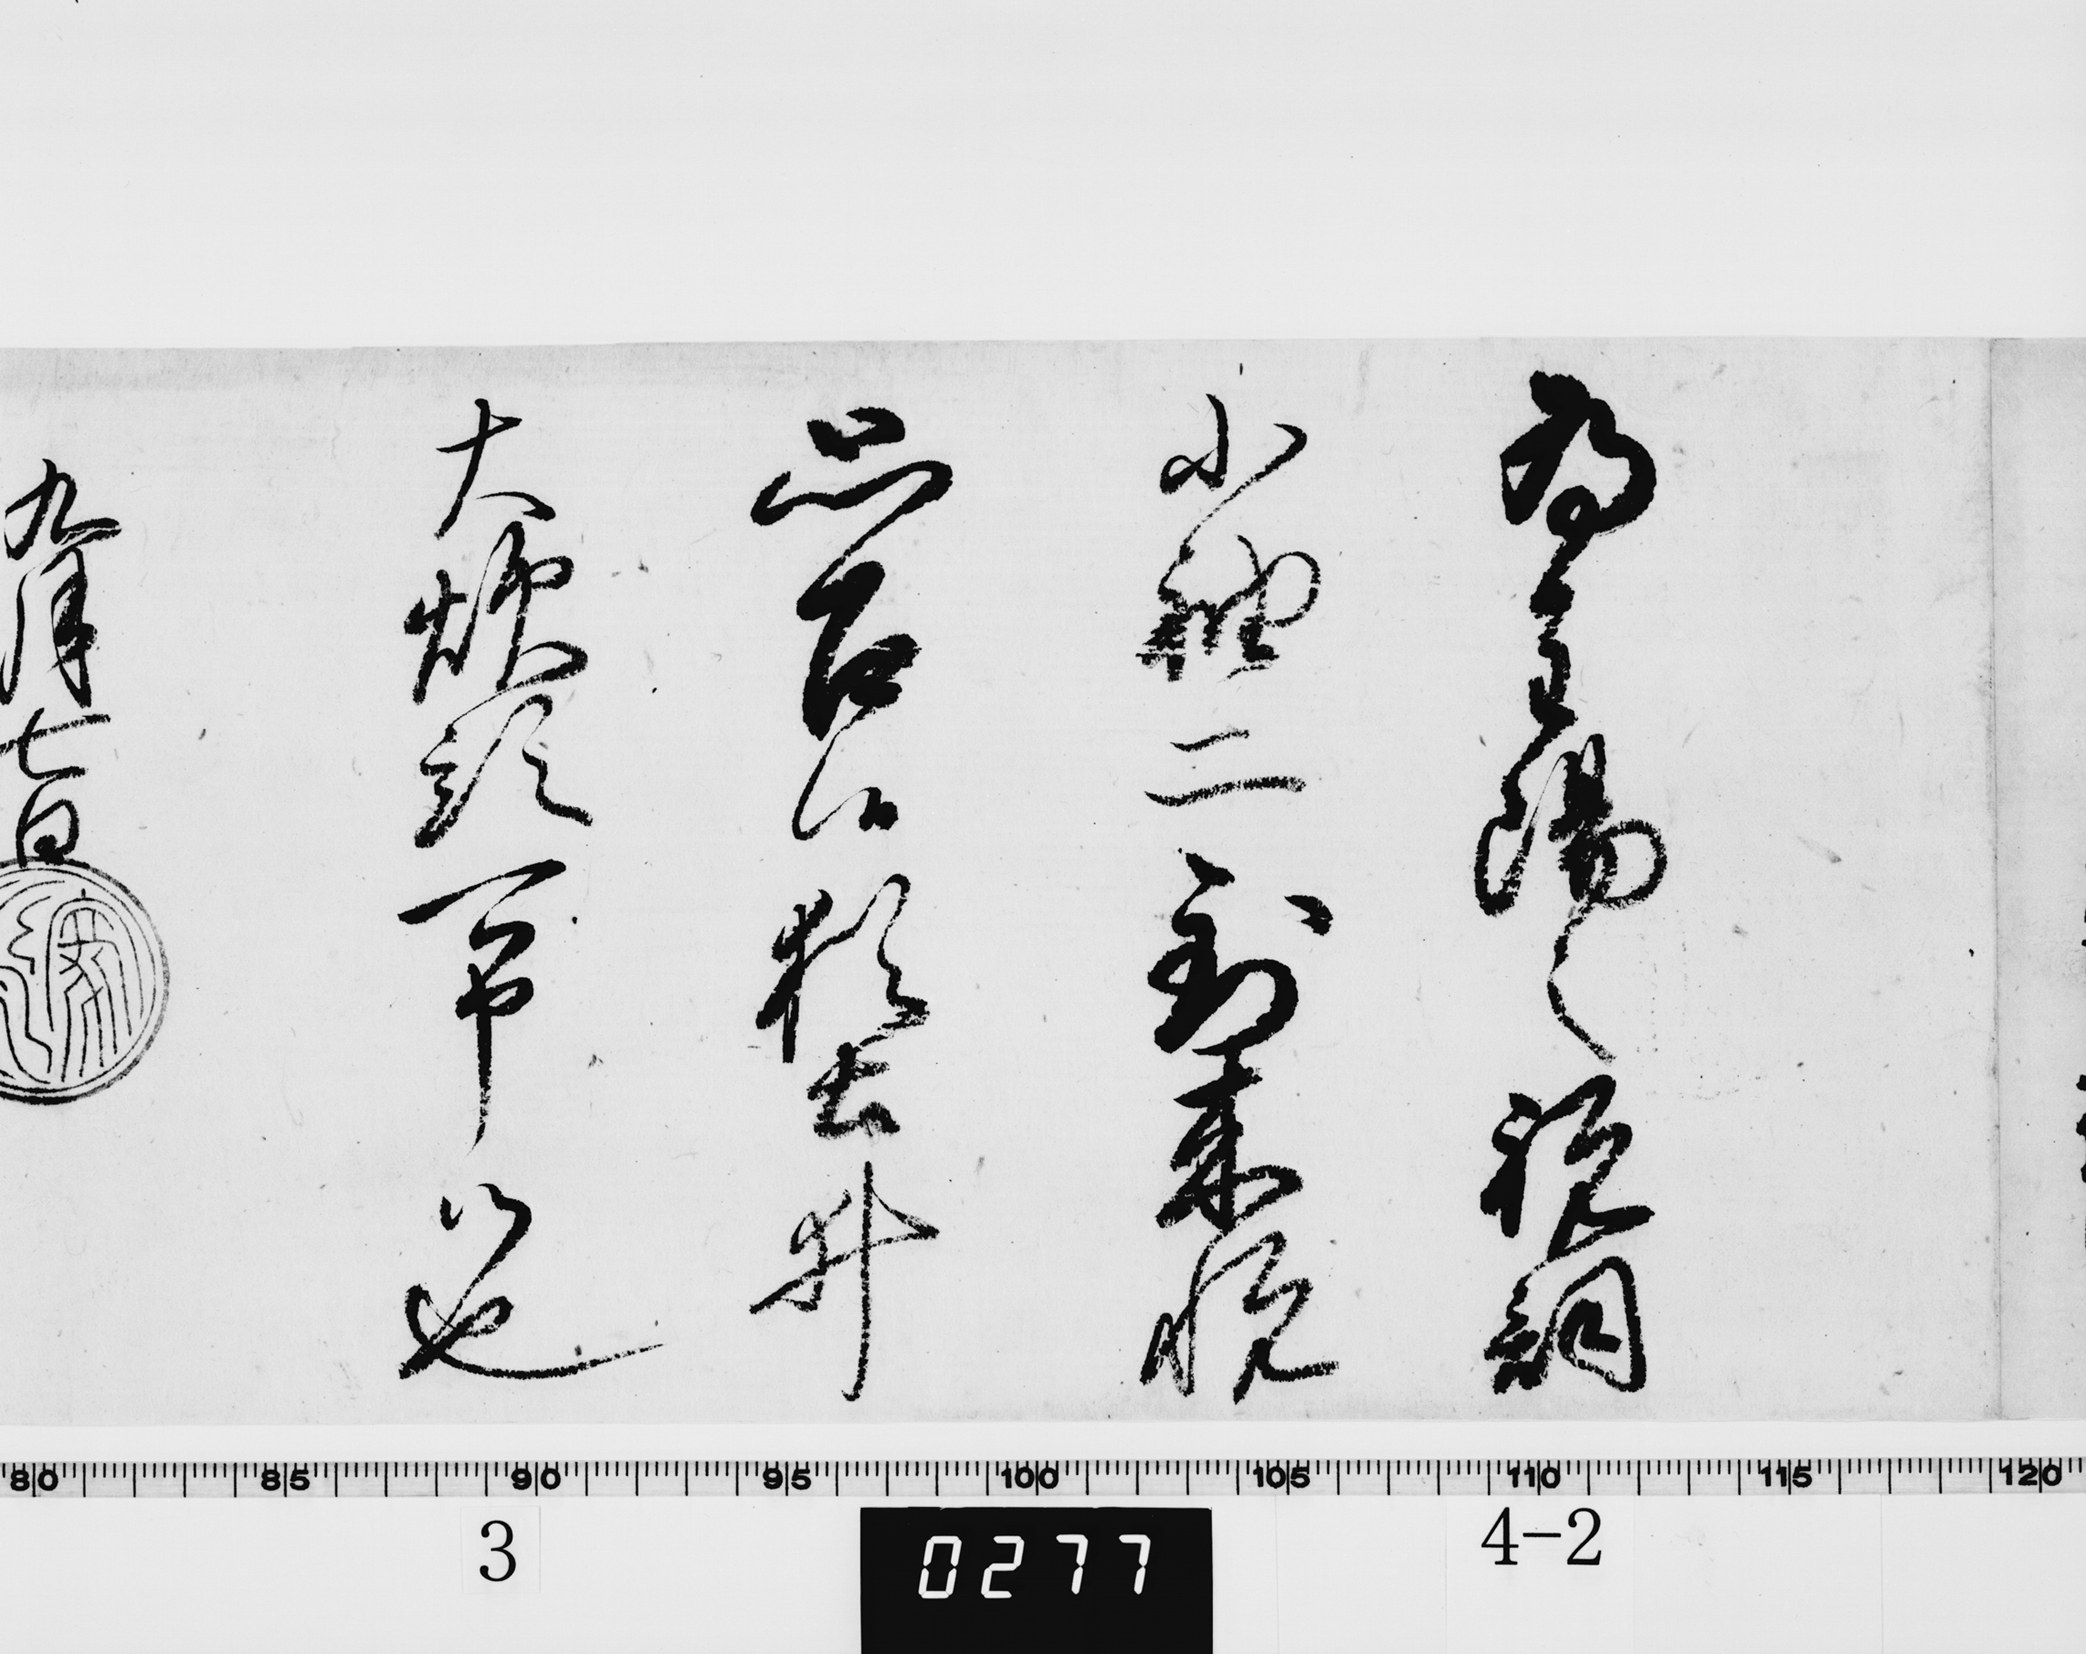 為重陽之祝詞
小袖二到来悦
思召候猶土井
大炊頭可申候也
九月七日
80 85 90 95 100 105 110 115 120
3 0277 4-2